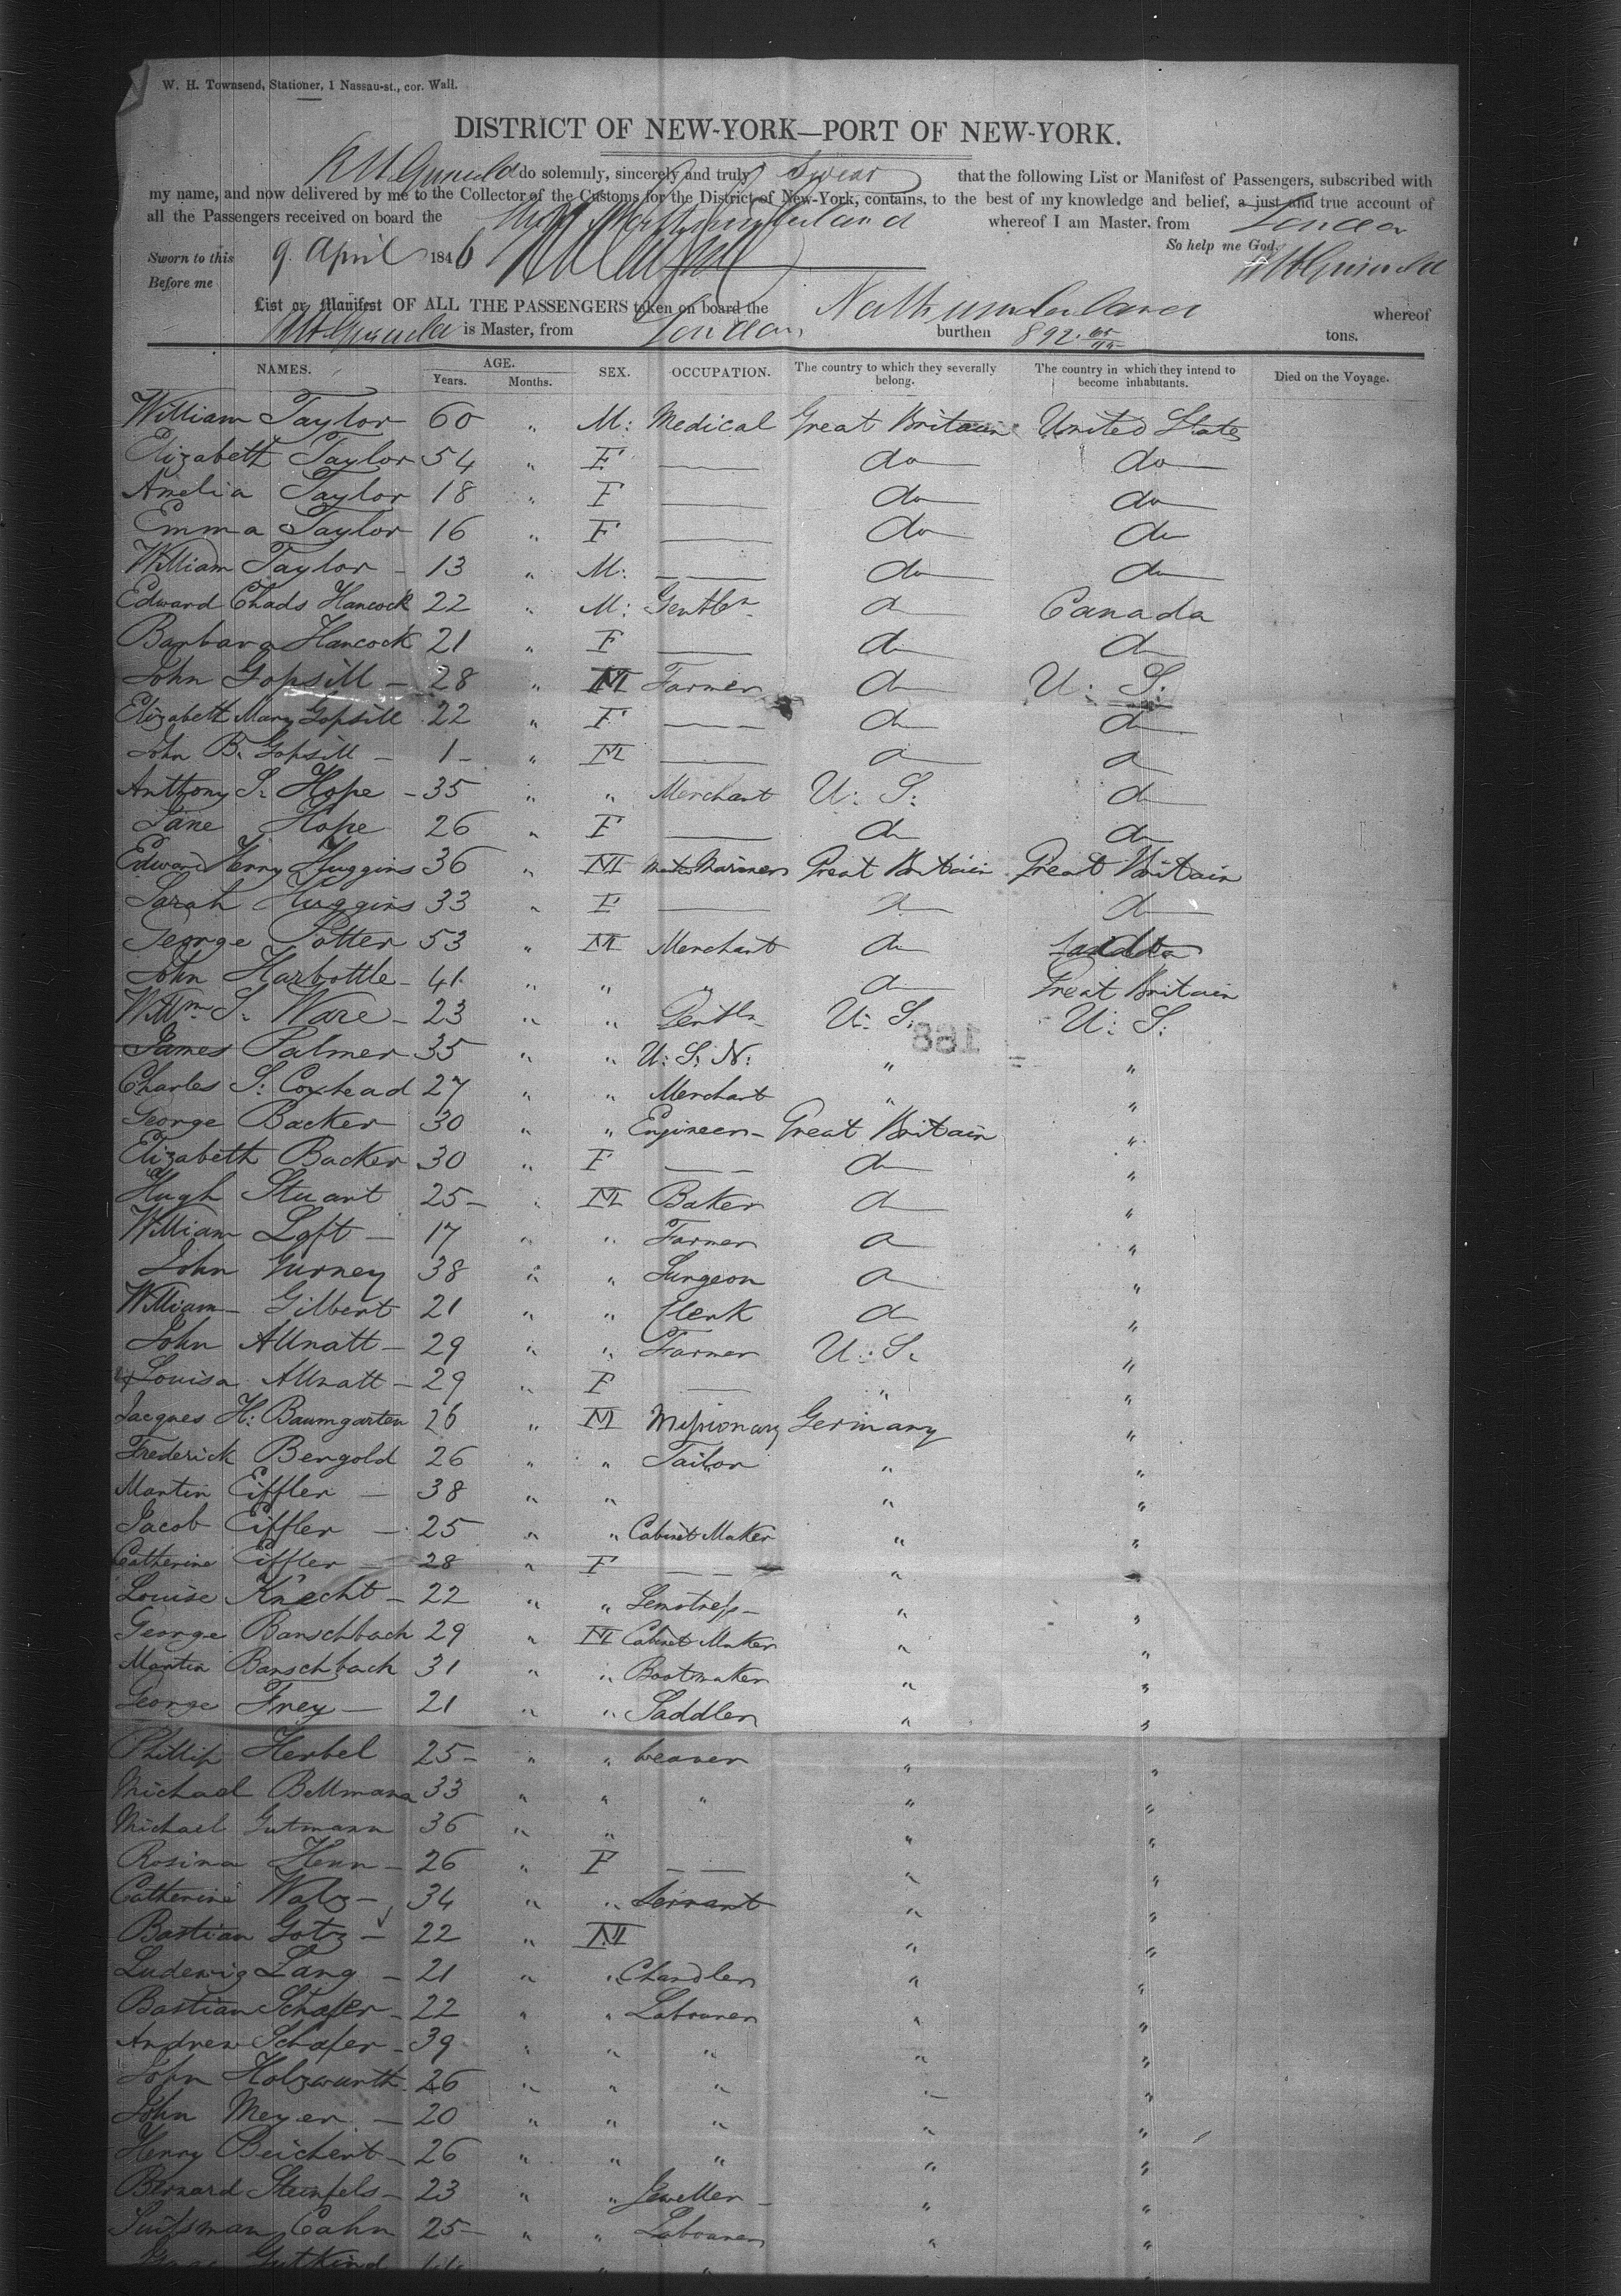 W. H. Townsend, Stationer, 1 Nassau-st., cor. Wall.
DISTRICT OF NEW-YORK—PORT OF NEW-YORK.
do solemnly, sincerely and truly swear that the following List or Manifest of Passengers, subscribed with
my name, and now delivered by me to the Collector of the Customs for the District of New-York, contains, to the best of my knowledge and belief, a just and true account of
all the Passengers received on board the Ship Northumberland whereof I am Master, from London
So help me God.
Sworn to this 9 April 1846
Before me
List or Manifest OF ALL THE PASSENGERS taken on board the Northumberland whereof
is Master, from London burthen 892. tons.
NAMES. AGE. SEX. OCCUPATION. The country to which they severally belong. The country in which they intend to become inhabitants. Died on the Voyage.
Years. Months.
William Taylor 60 " M: Medical Great Britain United States
Elizabeth Taylor 54 " F — do do
Amelia Taylor 18 " F — do do
Emma Taylor 16 " F — do do
William Taylor - 13 " M: — do do
Edward Chads Hancock 22 " M: Gentln do Canada
Barbara Hancock 21 " F — do do
John Gopsill - 28 " M Farmer do U: S:
Elizabeth Mary Gopsill 22 " F — do do
John B. Gopsill - 1 - " M — do do
Anthony S. Hope - 35 " " Merchant U: S: do
Jane Hope 26 " F — do do
Edward Henry Huggins 36 " M Master Mariner Great Britain Great Britain
Sarah Huggins 33 " F — do do
George Potter 53 " M Merchant do
John Harbottle - 41 " " " do Great Britain
Willm S. Ware - 23 " " Gentln U: S: U: S:
James Palmer 35 " " U: S: N: " "
Charles S: Coxhead 27 " " Merchant " "
George Backer 30 " " Engineer - Great Britain "
Elizabeth Backer 30 " F — do "
Hugh Stuart 25 - " M Baker do "
William Loft - 17 " " Farmer do "
John Gurney 38 " " Surgeon do "
William Gilbert 21 " " Clerk do "
John Allnatt - 29 " " Farmer U: S. "
Louisa Allnatt - 29 " F — " "
Jacques H: Baumgarten 26 " M Missionary Germany "
Frederick Bengold 26 " " Tailor " "
Martin Eiffler - 38 " " " " "
Jacob Eiffler - 25 " " Cabinet Maker " "
Catherine Eiffler - 28 " F — " "
Louise Knecht - 22 " " Semstress - " "
George Banschbach 29 " M Cabinet Maker " "
Martin Banschbach 31 " " Bootmaker " "
George Frey - 21 " " Saddler " "
Phillip Herbel 25 - " " weaver " "
Michael Bellmann 33 " " " " "
Michael Gutmann 36 " " " "
Rosina Henn - 26 " F — " "
Catherine Walz - 34 " " Servant " "
Bastian Gotz - 22 " M " "
Ludewig Lang - 21 " " Chandler " "
Bastian Schafer - 22 " " Labourer " "
Andrew Schafer - 39 " " " " "
John Holzwurth 26 " " " " "
John Meyer - 20 " " " " "
Henry Beichert - 26 " " " " "
Bernard Steinfels - 23 " " Jeweller - " "
Cahn 25 - " " Labourer " "
Gutkind